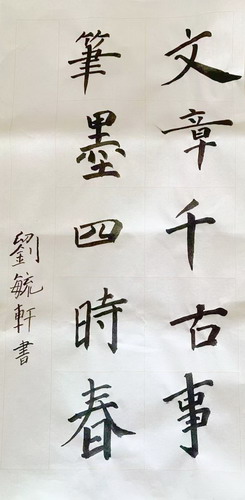 文章千古事
筆墨四時春
劉毓軒書